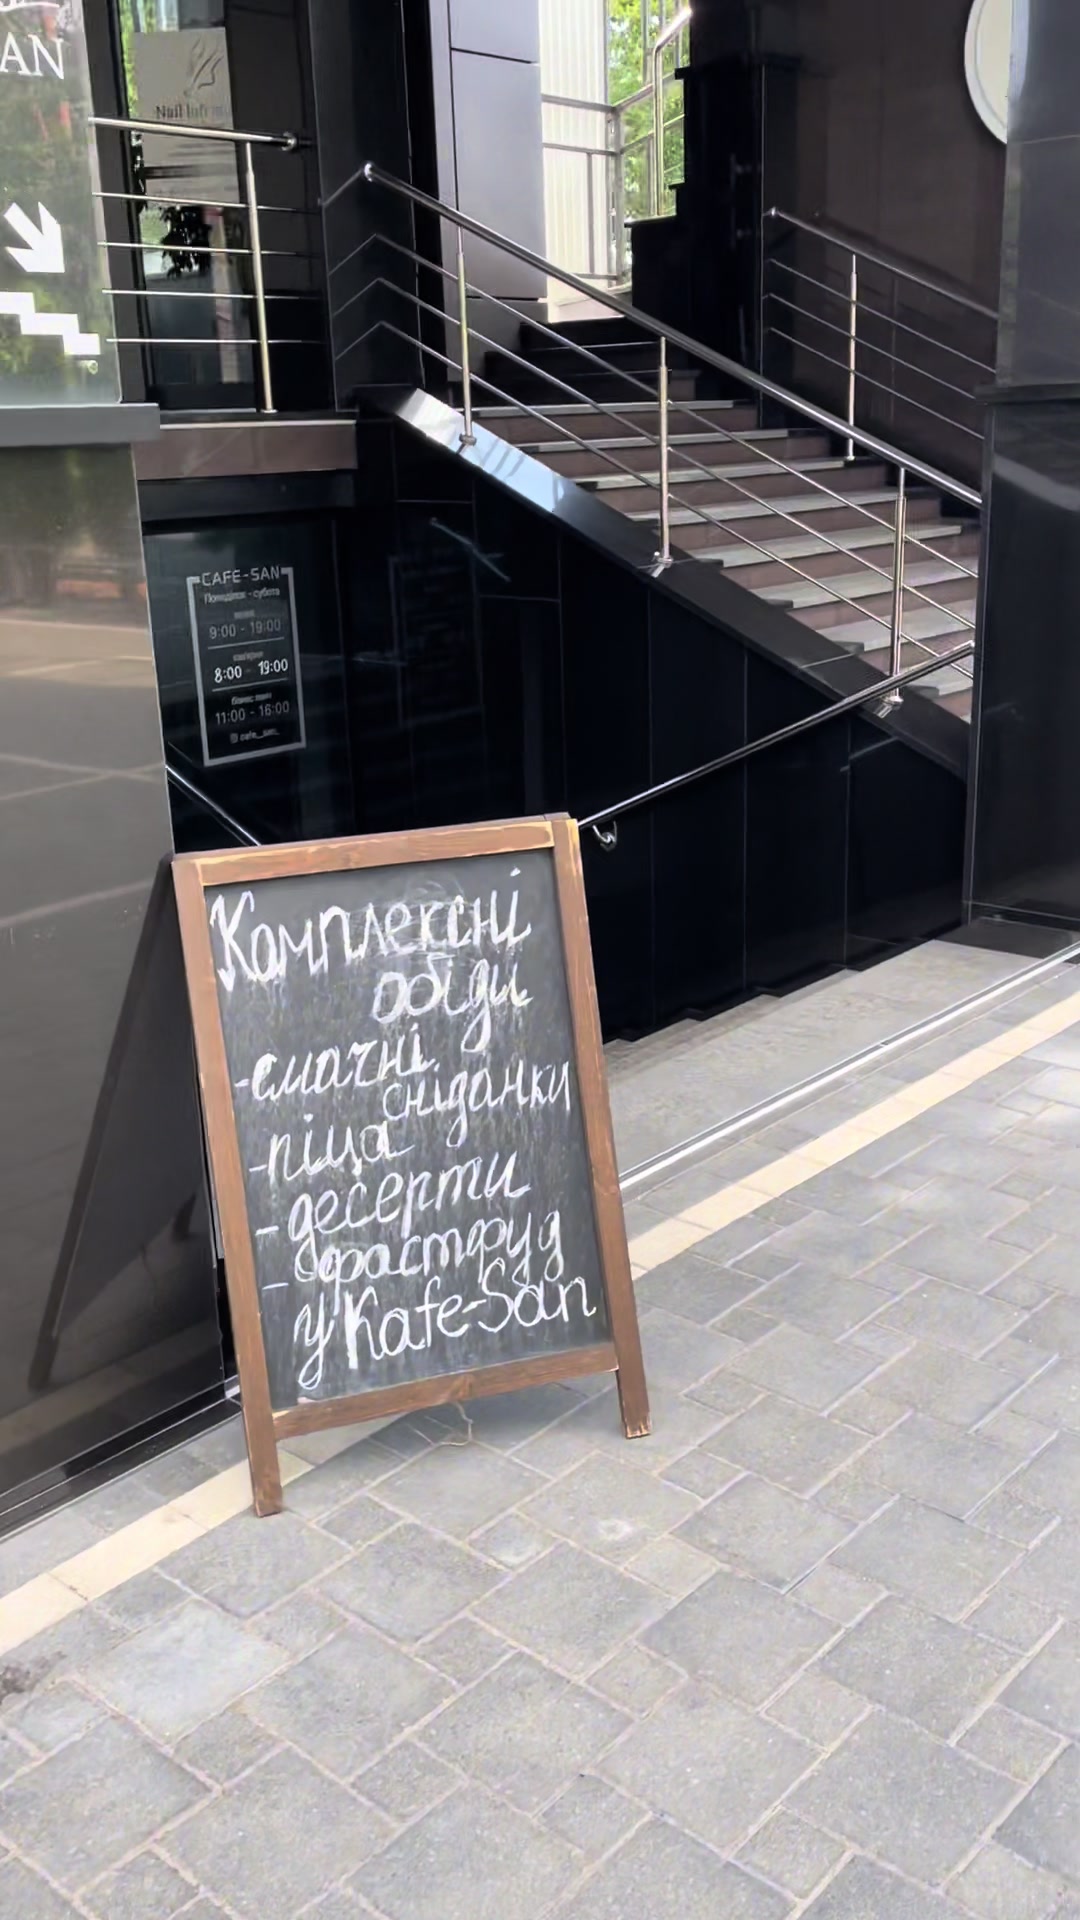 AN
CAFE-SAN
Понеділок - субота
9:00 - 19:00
8:00 - 19:00
бізнес ланч
11:00 - 16:00
cafe_san_
Комплексні
обіди
-смачні
сніданки
-піца
-десерти
- фастфуд
у Kafe-San